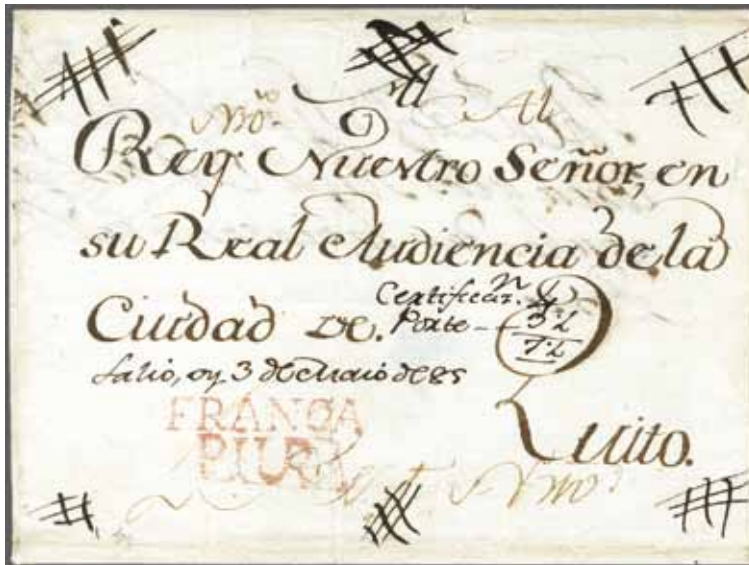 Al
Rey Nuestro Señor, en
su Real Audiencia de la
Ciudad de.
Certificar.n 4
Porte 3½
7½
Salio, oy 3 de Maio de 85
Quito.
FRANCA
PIURA